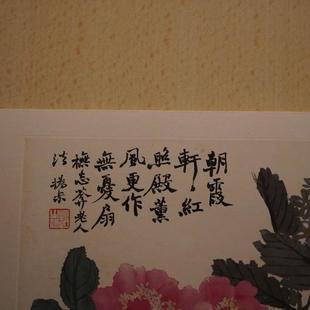 朝霞
軒軒紅
照殿薰
風更作
無憂扇
橅忘荃老人
法 橒宋